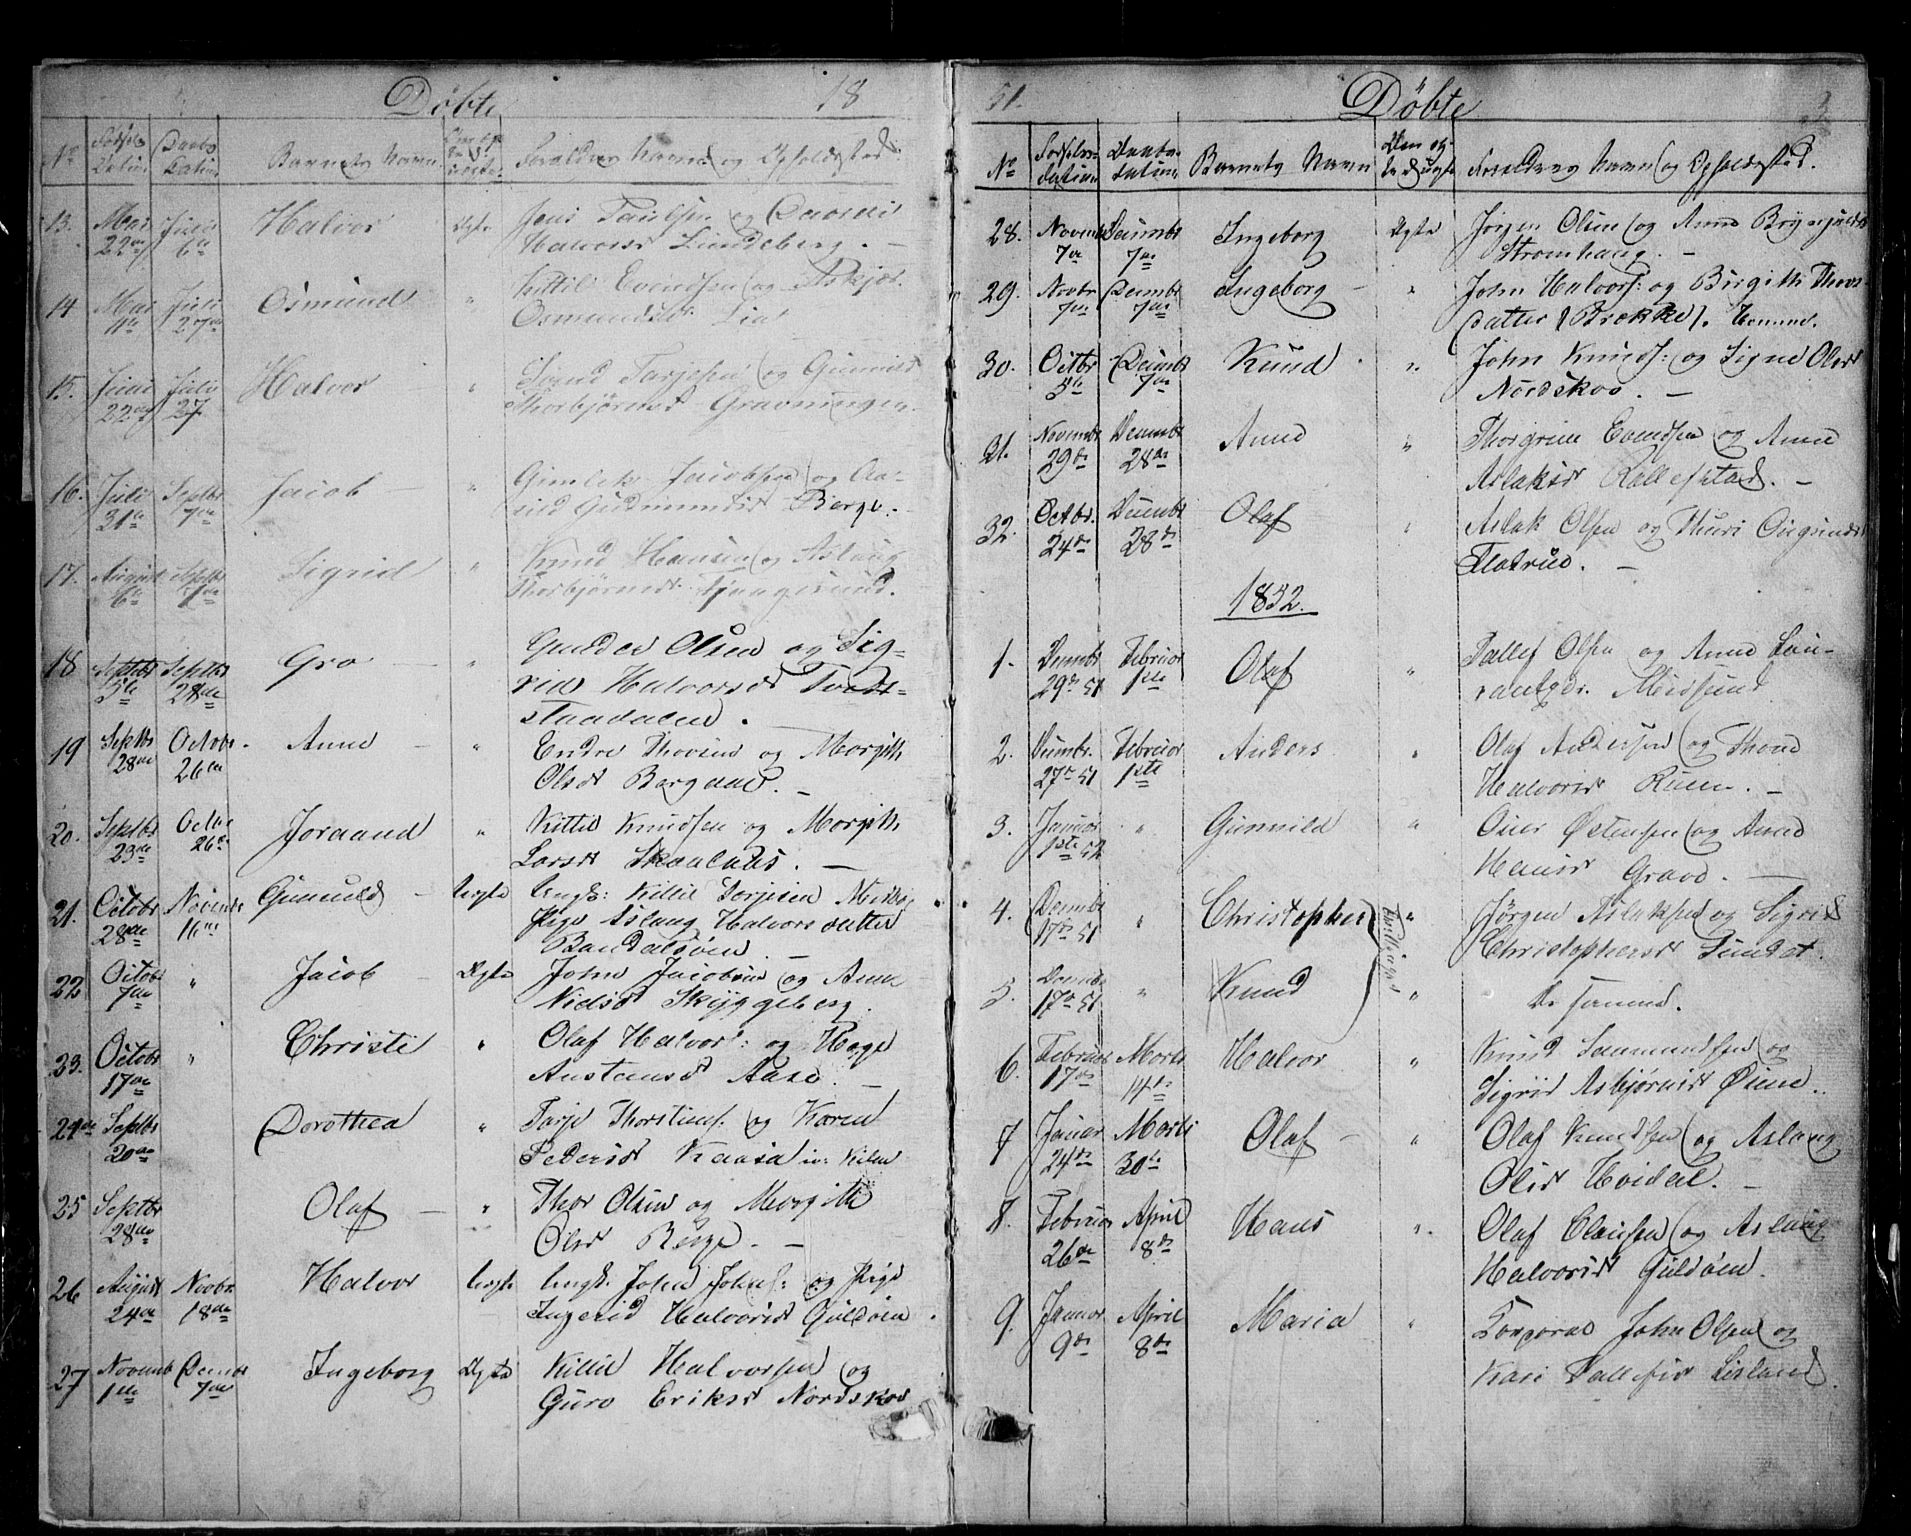 Döbte 18
No Födsels Datum Daabs Datum Barnets Navn Om ægte Forældres Navne og Opholdssted
13. Mai 22de Juli 6te Halvor Ægte Jens Paulsen og
Halvorsd Lundeberg. —
14 Mai Juli 27de Osmund " Kittil Evendsen og Askjer
Osmundsdr Lia
15. Juni 22de Juli 27 Halvor " Svend Tarjesen og Gunnild
Thorbjørnsd Gravningen.
16. Juli 31te Septbr 7de Jacob — " Jacobsen og Aa-
sild Gudmundsd Berge.
17. August 6te Septbr Sigrid " Knud Hansen og Aslaug
Thorbjørnsd
18 Septbr 5te Septbr 28de Gro — " Gunder Olsen og Sig-
rid Halvorsd Tved-
staadalen.
19 Septbr 28de Octobr. 26de Anne — " Endre Thovsen og Margith
Olsdt Borgaas. —
20. Septbr 23de Octbr 26de Joraand " Kittil Knudsen og Margith
Larsd Skaalnæs. —
21. Octobr 28de Novembr 16de Gunnild — Uægte Ungk: Kittil Torjesen
Pige Aslaug Halvorsdatter
Bandaksöen. —
22 Octobr 7de " Jacob — Ægte John Jacobsen og Anne
Nielsd Skyggeberg.
23. Octobr 17de " Christi " Olaf Halvors: og Hæge
Austensd Aase. —
24de Septbr 20de Dorothea " Tarje Thorstens. og Karen
Pedersd Kaasa iv: Kilen
25 Septbr 28de Olaf — " Thor Olsen og Margith
Olsd Berge. —
26 August 24de Novbr 18de Halvor Uægte Ungk. John Johns: og Pige
Ingerid Halvorsd Guldöen.
27 Novemb 1ste Decembr 7de Ingeborg Ægte Kittil Halvorsen og
Guro Eriksd Nordskov
51. Döbte 3
No Födsels- datum Daabs- datum Barnets Navn Om æg- te el uægte Forældres Navne og Opholdssted.
28. Novemb 7de Decembr 7de Ingeborg Ægte Jörgen Olsen og Anne Brynjulsd
Strømhaug. —
29. Novbr 7de Decembr 7de Ingeborg — " John Halvors: og Birgith Thovs
datter (Brække).
30. Octbr 5te Decembr 7de Knud " John Knuds: og Signe Olsd
Nordskov. —
31. Novembr 29de Decembr 28de Anne " Thorgrim Evendsen og Anne
Aslaksd Rollefstad. —
32. Octbr. 24de Decembr 28de Olaf " Aslak Olsen og Thuri
Flatrud. —
1852.
1. Decembr 29de 51 Februar 1ste Olaf " Tallef Olsen og Anne Lau-
rantsdr. Midsund
2. Decembr. 27de 51 Februar 1ste Anders " Olaf Andersen og Thone
Halvorsd Ruen. —
3. Januar 1ste 52 " Gunnild " Östensen og Anne
Hansd Graver. —
4. Decembr 17de 51 " Christopher Tvillinger " Jörgen Aslaksen og Sigrid
Christophersd Sundet.
5. Decembr 17de 51 " Knud " De samme.
6. Februar 17de Marts 14de Halvor " Knud Sammundsen og
Sigrid Asbjørnsd Øine.
7 Januar 24de Marts 30te Olaf — " Olaf Knudsen og Aslaug
Olsd Hvidal. —
8. Februar 26de April 8de Hans " Olaf Clausen og Aslaug
Halvorsd Guldöen.
9. Januar 9de April 8de Maria " Korporal John Olsen og
Kari Tallefsd Lisland